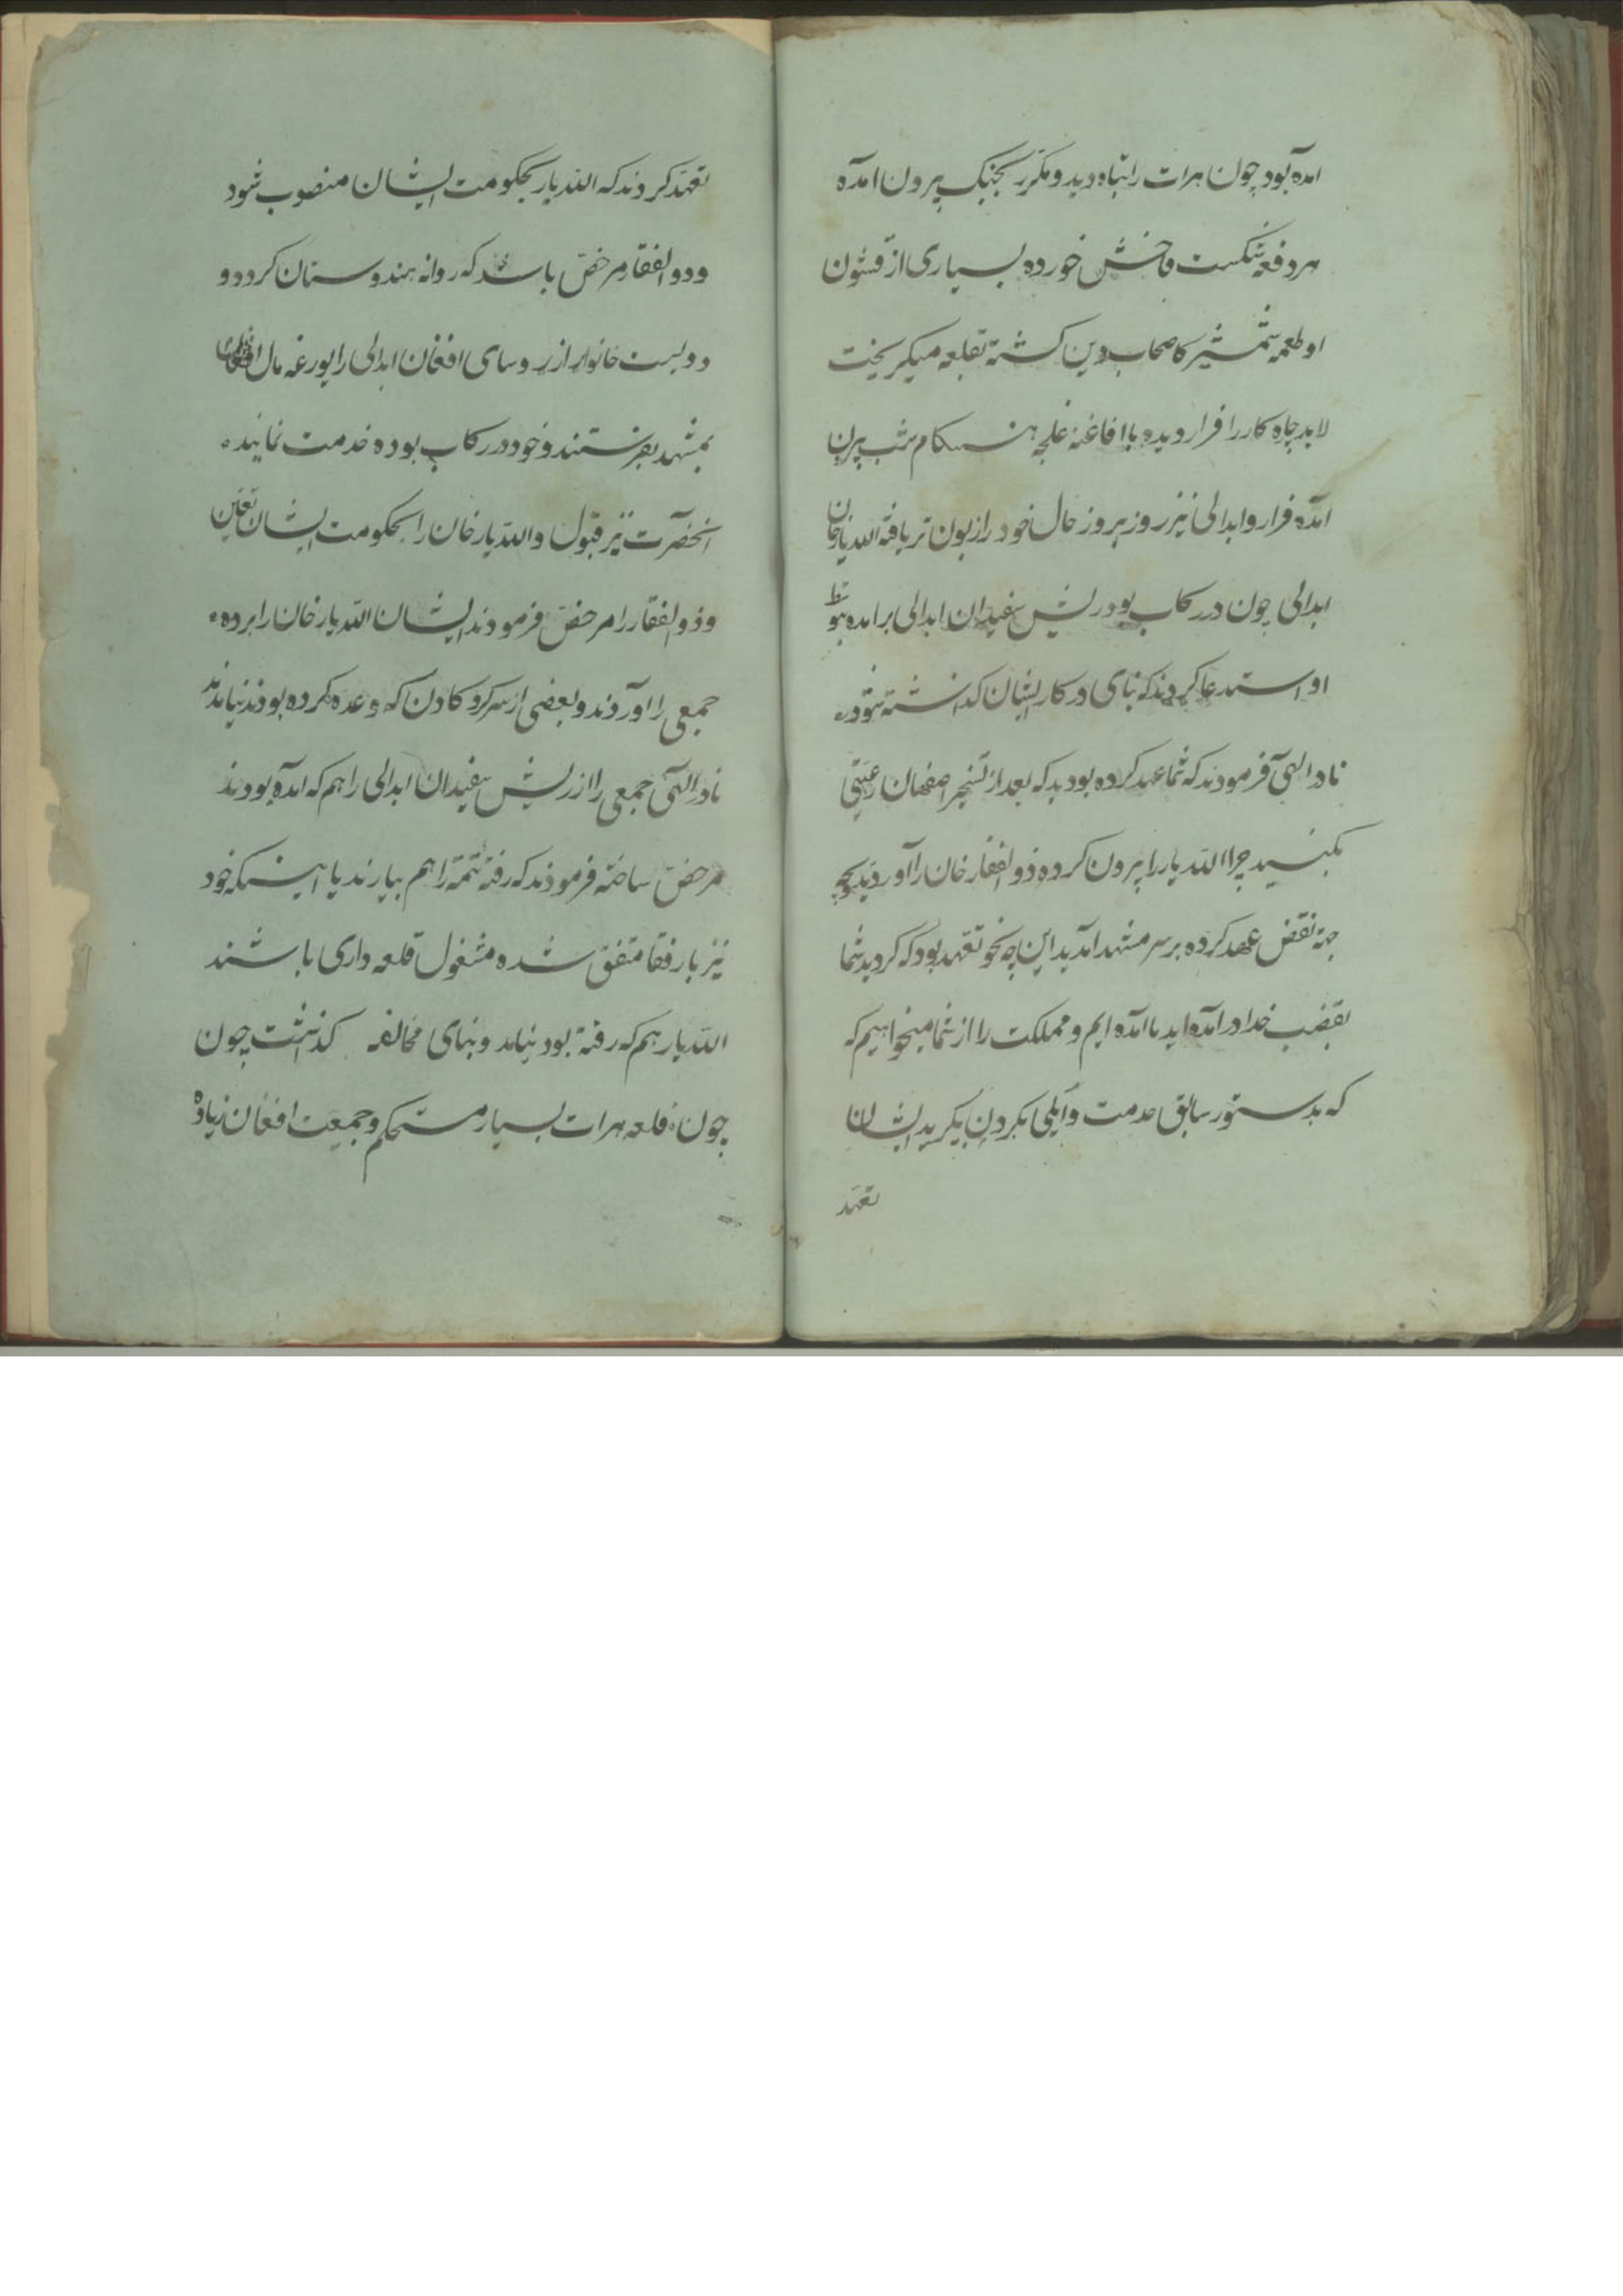 امده بود چون هرات را تباه دید و مکرر بجنک بیرون امده
هر دفعه شکست فاحش خورده بسیاری از قشون
او طعمه شمشیر کاصحاب دین کشته بقلعه میکریخت
لابد چاه کار را فرار دیده با افاغنه غلجه هنکام شب بیرون
امده فرار و ابدالی نیز روز بروز حال خود را زبون تر یافته اللدیار خان
ابدالی چون در رکاب بود ریش سفیدان ابدالی برامده بتوسط
او استدعا کردند که بنای در کار ایشان کذاشته شود
نادر الهی فرمودند که شما عهد کرده بودید که بعد از تسخیر اصفهان رعیتی
بکنید چرا اللدیار را بیرون کرده ذوالفقار خان را آوردید و بچه
جهة نقض عهد کرده بر سر مشهد امدید این چه نحو تعهد بود که کردید شما
بغضب خدا در امده اید ما امده ایم و مملکت را از شما میخواهیم که
که بدستور سابق خدمت و ایلی بکردن بکیرید ایشان
تعهد
تعهد کردند که اللدیار بحکومت ایشان منصوب شود
و ذوالفقار مرخص باشد که روانه هندوستان کردد و
دویست خانوار از روسای افغان ابدالی را یورغه مال افغان
بمشهد بفرستند و خود در رکاب بوده خدمت نمایند
انحضرت نیز قبول و اللدیار خان را بحکومت ایشان تعیین
و ذوالفقار را مرخص فرمودند ایشان اللدیار خان را برده
جمعی را اوردند و بعضی از سرکردکان که وعده کرده بودند نیامدند
نادر الهی جمعی را از ریش سفیدان ابدالی را هم که امده بودند
مرخص ساخته فرمودند که رفته تتمه را هم بیارند یا اینکه خود
نیز با رفقا متفق شده مشغول قلعه داری باشند
اللدیار هم که رفته بود نیامد و بنای مخالفه کذاشت چون
چون قلعه هرات بسیار مستحکم و جمعیت افغان زیاده